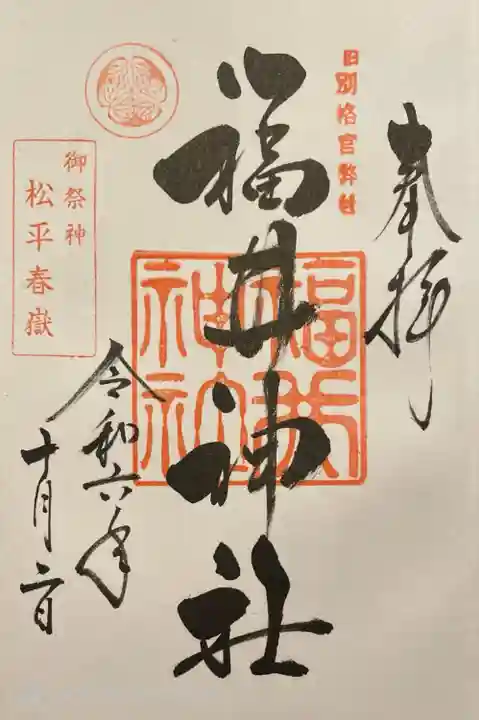 奉拝
旧別格官幣社
福井神社
福井神社
御祭神
松平春嶽
令和六年
十月二日